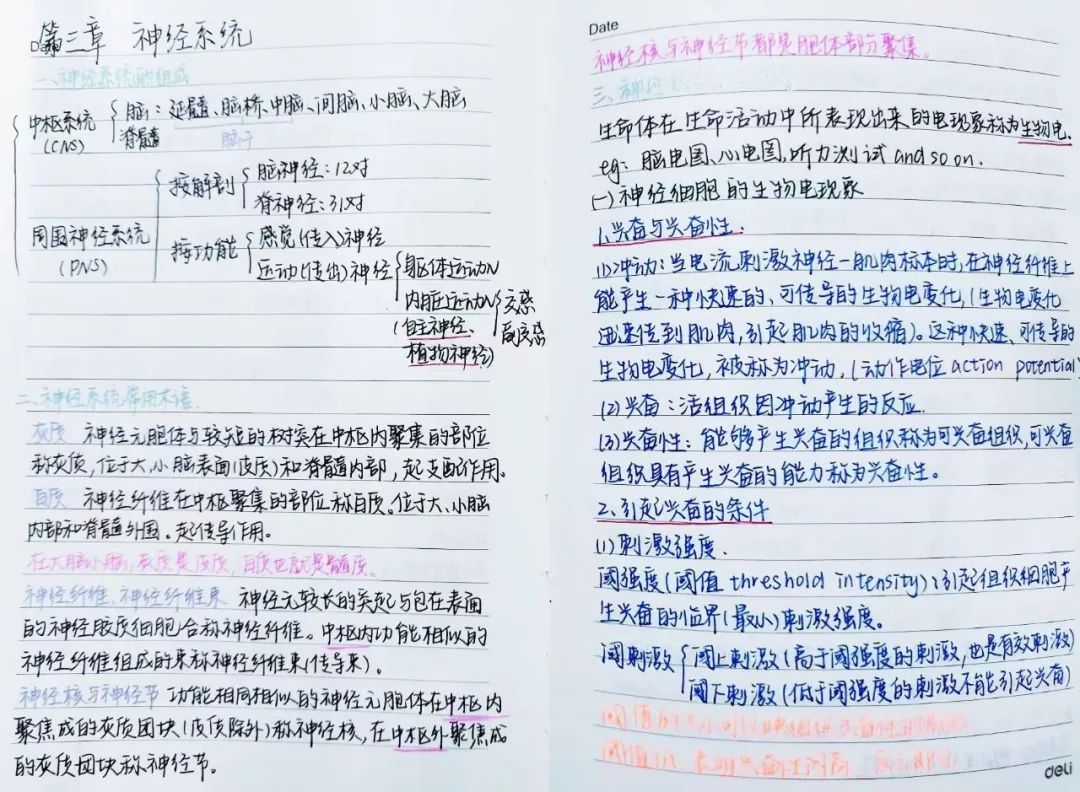 第三章 神经系统
一、神经系统的组成
中枢系统(CNS) 脑：延髓、脑桥、中脑、间脑、小脑、大脑
脊髓 脑干
周围神经系统(PNS)
按解剖 脑神经：12对
脊神经：31对
按功能 感觉(传入)神经
运动(传出)神经 躯体运动N
内脏运动N 交感
(自主神经、 副交感
植物神经)
二、神经系统常用术语
灰质 神经元胞体与较短的树突在中枢内聚集的部位
称灰质，位于大、小脑表面(皮质)和脊髓内部，起支配作用。
白质 神经纤维在中枢聚集的部位称白质。位于大、小脑
内部和脊髓外围。起传导作用。
在大脑小脑，灰质是皮质，白质也就是髓质。
神经纤维、神经纤维束 神经元较长的突起与包在表面
的神经胶质细胞合称神经纤维。中枢内功能相似的
神经纤维组成的束称神经纤维束(传导束)。
神经核与神经节 功能相同相似的神经元胞体在中枢内
聚集成的灰质团块(皮质除外)称神经核，在中枢外聚集成
的灰质团块称神经节。
Date
神经核与神经节都是胞体部分聚集。
三、神经
生命体在生命活动中所表现出来的电现象称为生物电.
eg：脑电图、心电图、听力测试 and so on.
(一)神经细胞的生物电现象
1.兴奋与兴奋性.
(1)冲动：当电流刺激神经—肌肉标本时，在神经纤维上
能产生一种快速的、可传导的生物电变化，(生物电变化
迅速传到肌肉，引起肌肉的收缩)。这种快速、可传导的
生物电变化，被称为冲动，(动作电位 action potential)
(2)兴奋：活组织因冲动产生的反应.
(3)兴奋性：能够产生兴奋的组织称为可兴奋组织，可兴奋
组织具有产生兴奋的能力称为兴奋性。
2、引起兴奋的条件
(1)刺激强度.
阈强度(阈值 threshold intensity)：引起组织细胞产
生兴奋的临界(最小)刺激强度。
阈刺激 阈上刺激(高于阈强度的刺激，也是有效刺激)
阈下刺激(低于阈强度的刺激不能引起兴奋)
阈值
阈值
deli